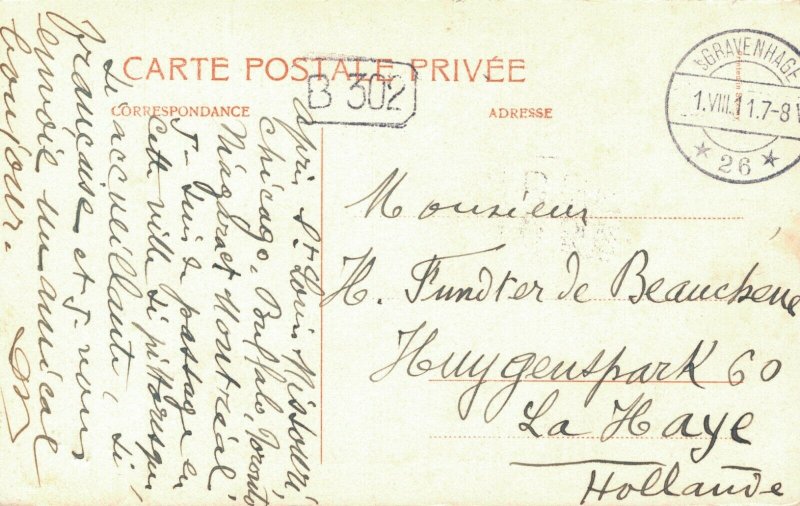 CARTE POSTALE PRIVÉE
CORRESPONDANCE
ADRESSE
B 302
'SGRAVENHAGE
1.VIII.11.7-8V
26
après St. Louis Missouri,
Chicago, Buffalo, Toronto
Niagara et Montréal
Je suis de passage en
cette ville si pittoresque,
si accueillante, si
française et j'vous
envoie un amical
bonjour.
Monsieur
H. Fundter de Beauchene
Huygenspark 60
La Haye
Hollande